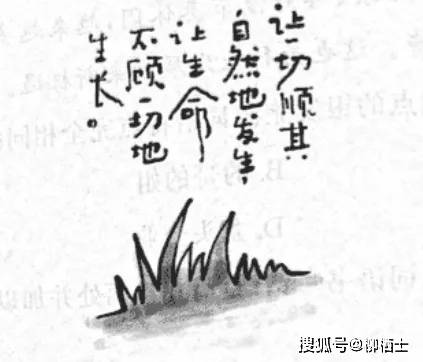 让一切顺其
自然地发生，
让生命
不顾一切地
生长。
搜狐号@柳栖士